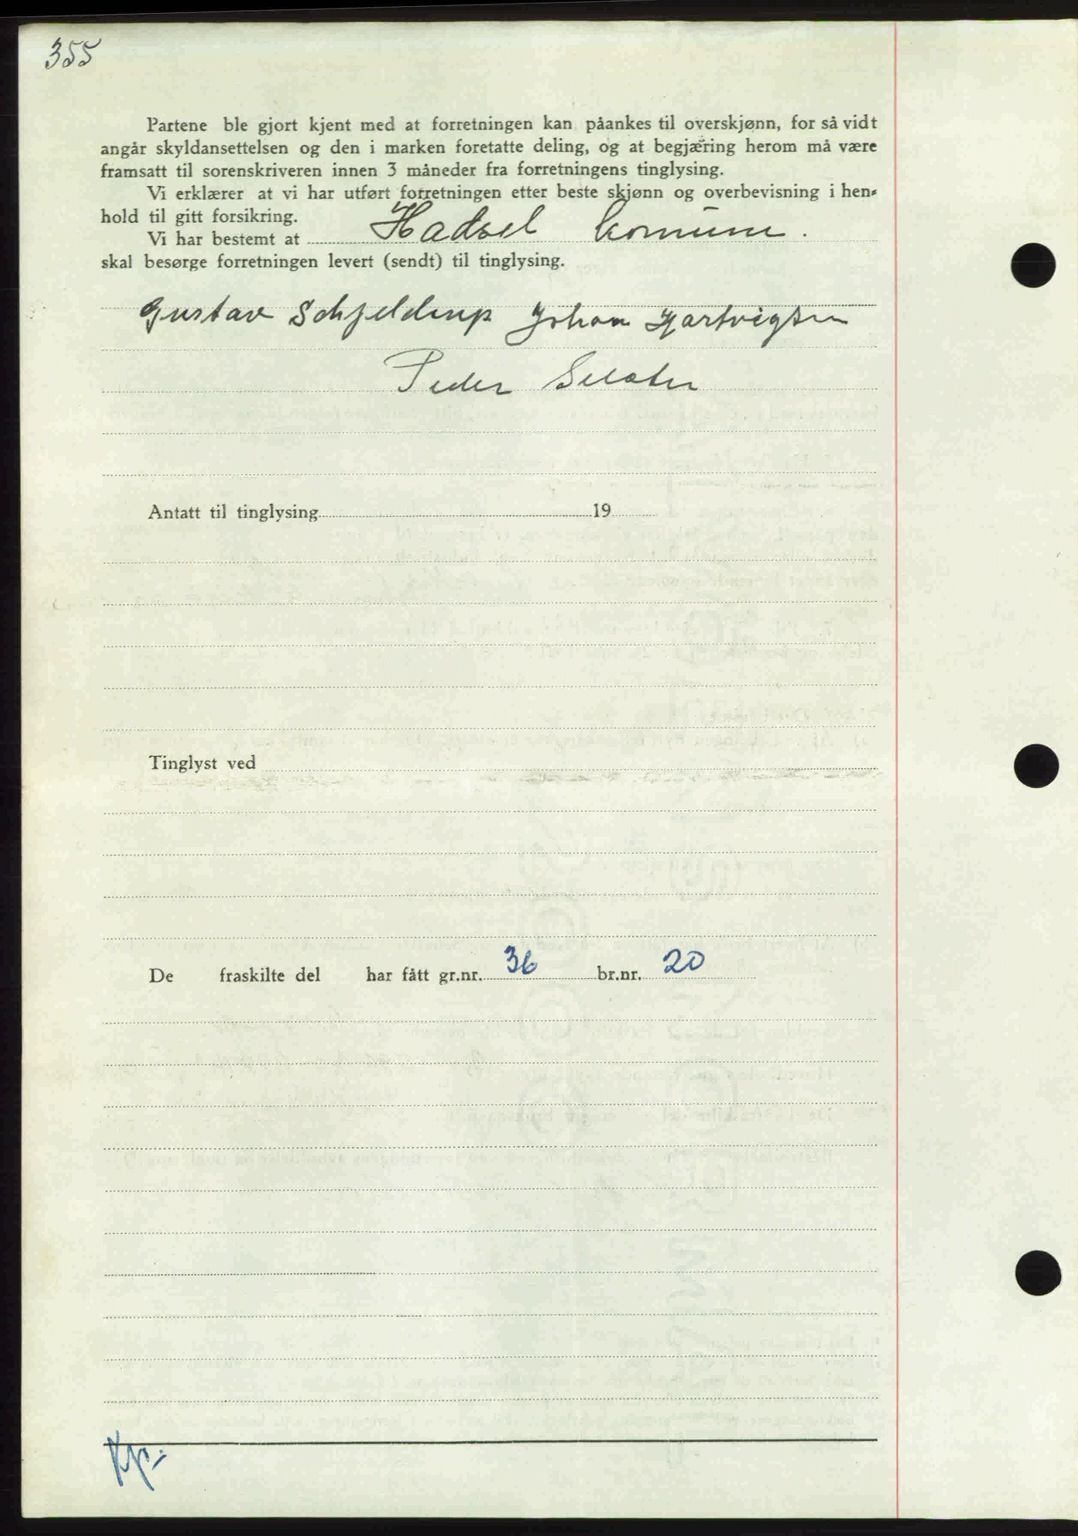 355
Partene ble gjort kjent med at forretningen kan påankes til overskjønn, for så vidt
angår skyldansettelsen og den i marken foretatte deling, og at begjæring herom må være
framsatt til sorenskriveren innen 3 måneder fra forretningens tinglysing.
Vi erklærer at vi har utført forretningen etter beste skjønn og overbevisning i hen-
hold til gitt forsikring.
Vi har bestemt at Hadsel komune.
skal besørge forretningen levert (sendt) til tinglysing.
Gustav Schjelderup Johan Hjartvigsen
Peder
Antatt til tinglysing 19
Tinglyst ved
De fraskilte del har fått gr.nr. 36 br.nr. 20